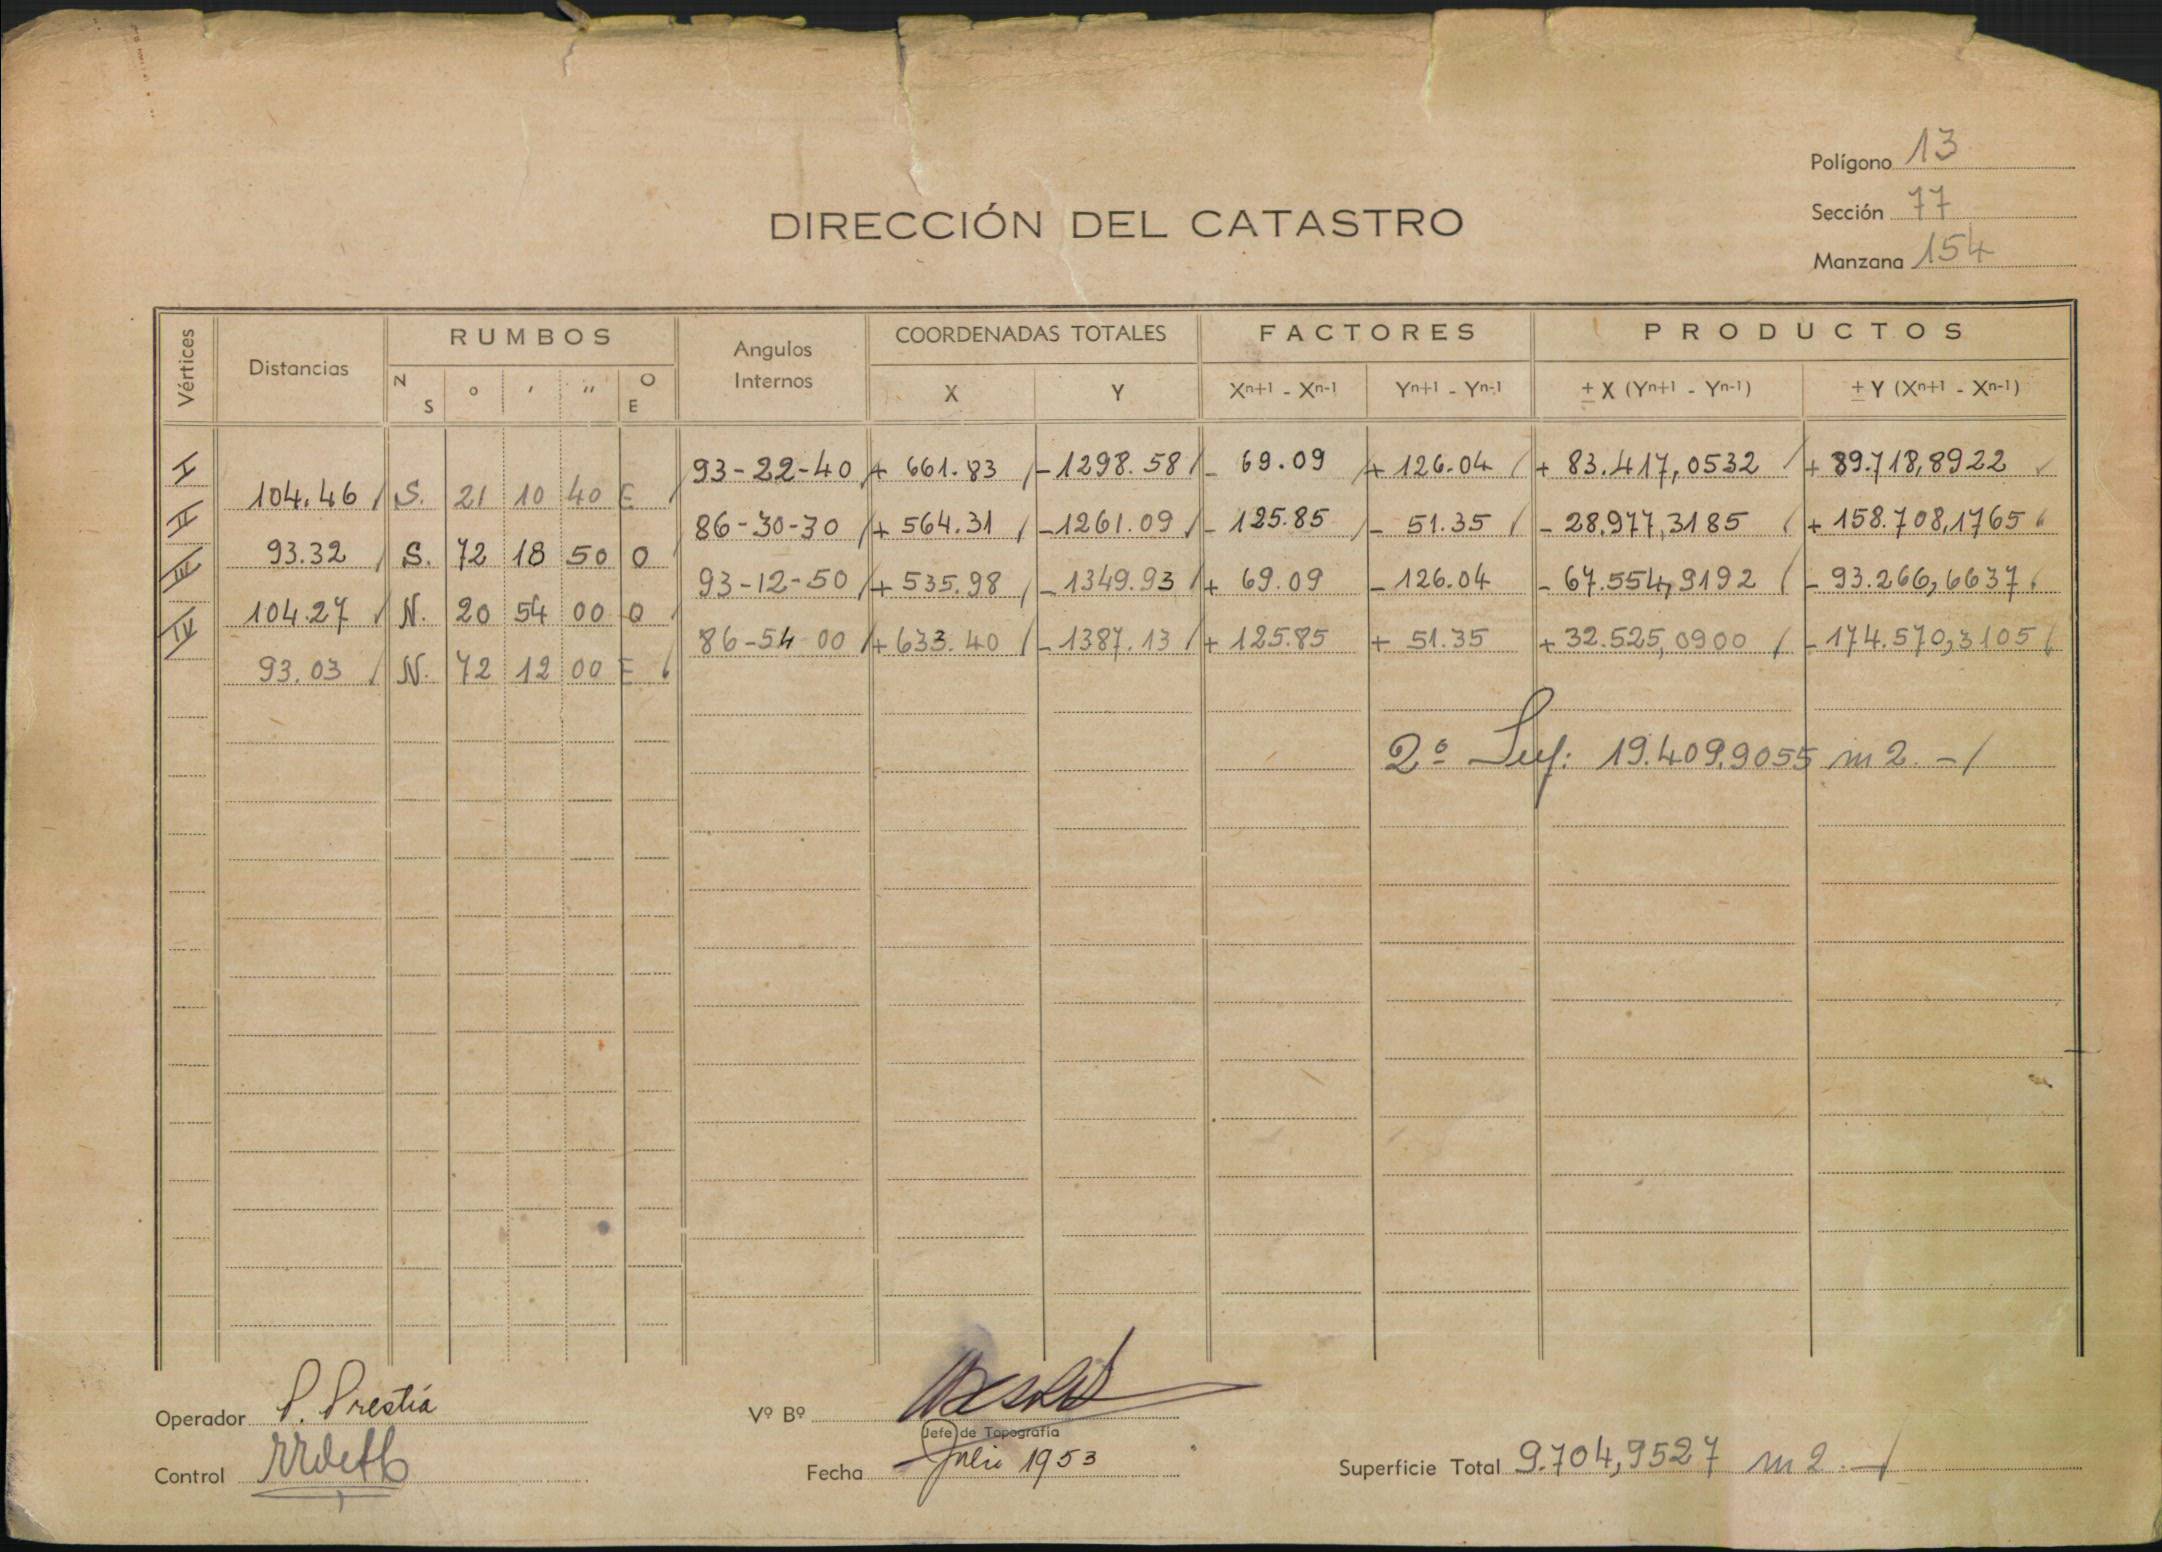 Polígono 13
Sección 77
Manzana 154
DIRECCIÓN DEL CATASTRO
Vértices Distancias RUMBOS Angulos Internos COORDENADAS TOTALES FACTORES PRODUCTOS
N S ° ' '' O E X Y Xn+1 - Xn-1 Yn+1 - Yn-1 ± X (Yn+1 - Yn-1) ± Y (Xn+1 - Xn-1)
I 93-22-40 + 661.83 -1298.58 - 69.09 + 126.04 + 83.417,0532 + 89.718,8922
104.46 S. 21 10 40 E
II 86-30-30 + 564.31 -1261.09 - 125.85 - 51.35 - 28.977,3185 + 158.708,1765
93.32 S. 72 18 50 O
III 93-12-50 + 535.98 -1349.93 + 69.09 - 126.04 - 67.554,9192 - 93.266,6637
104.27 N. 20 54 00 O
IV 86-54 00 + 633.40 -1387.13 + 125.85 + 51.35 + 32.525,0900 - 174.570,3105
93.03 N. 72 12 00 E
2ª Sup: 19.409,9055 m2.-
Operador P. Prestia
Vº Bº
Jefe de Topografía
Control
Fecha Julio 1953
Superficie Total 9.704,9527 m2.-